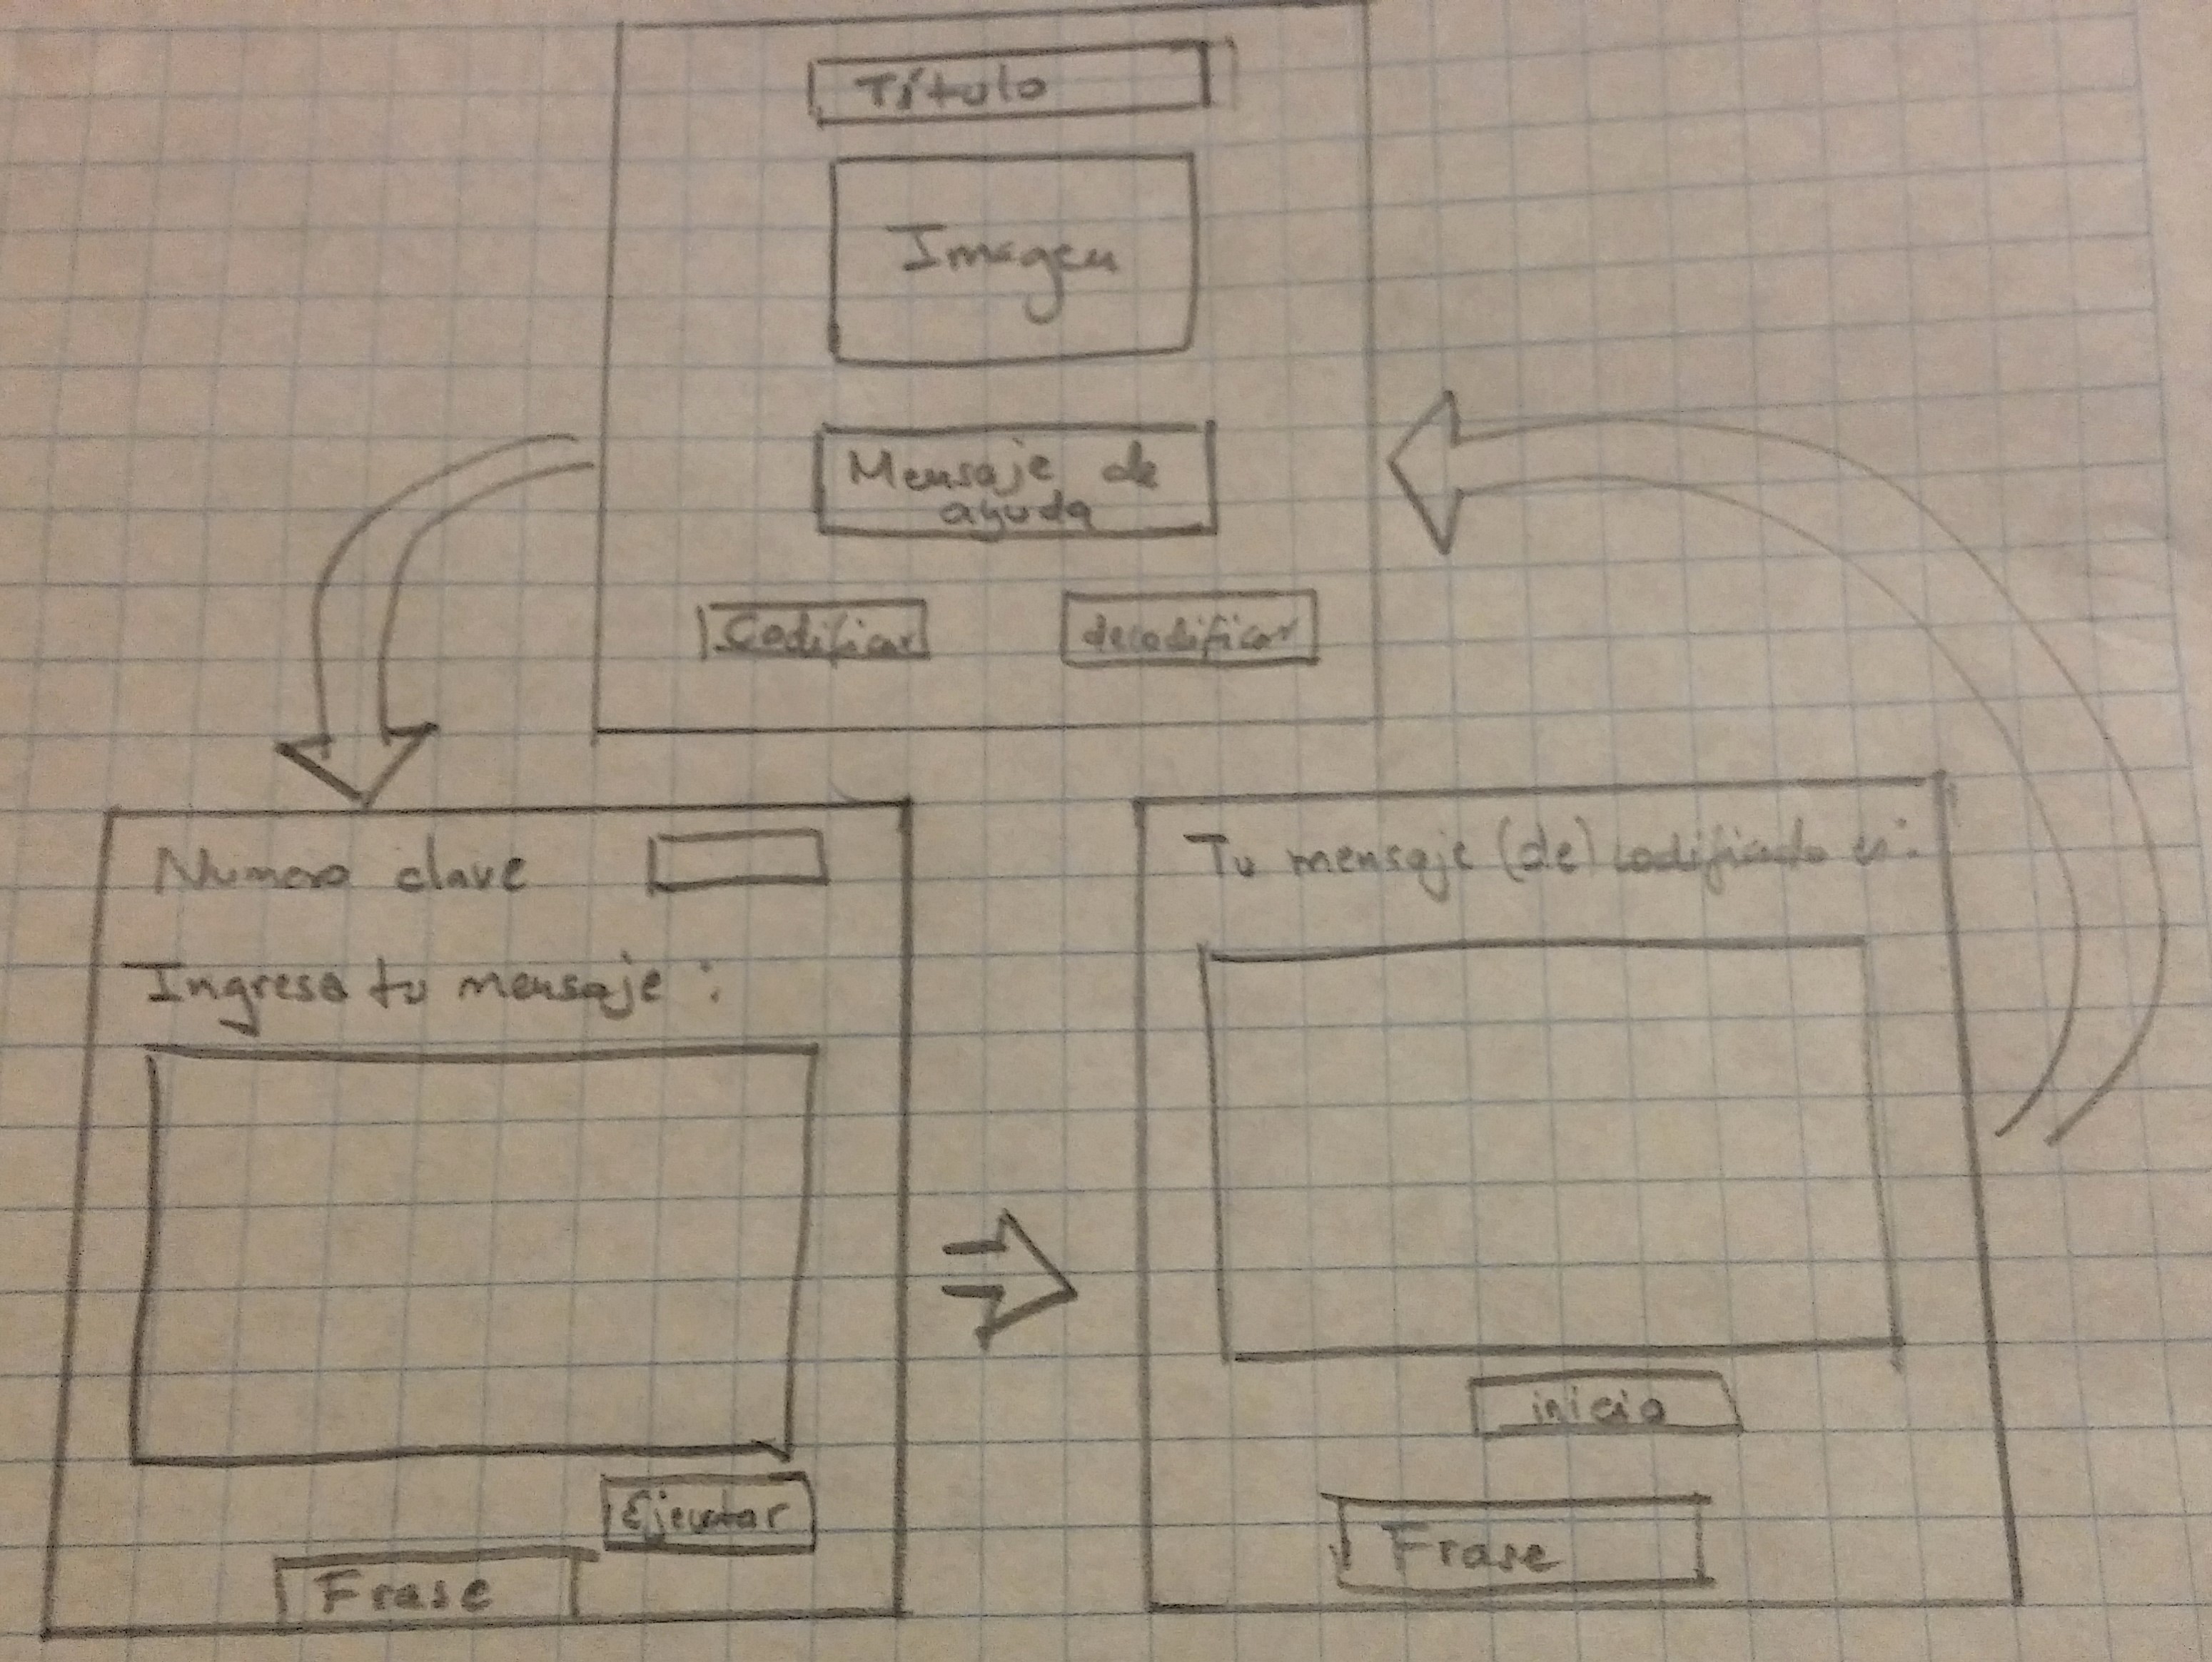 Título
Imagen
Mensaje de
ayuda
Codificar
decodificar
Numero clave
Ingresa tu mensaje :
Ejecutar
Frase
Tu mensaje (de) codificado es:
inicio
Frase